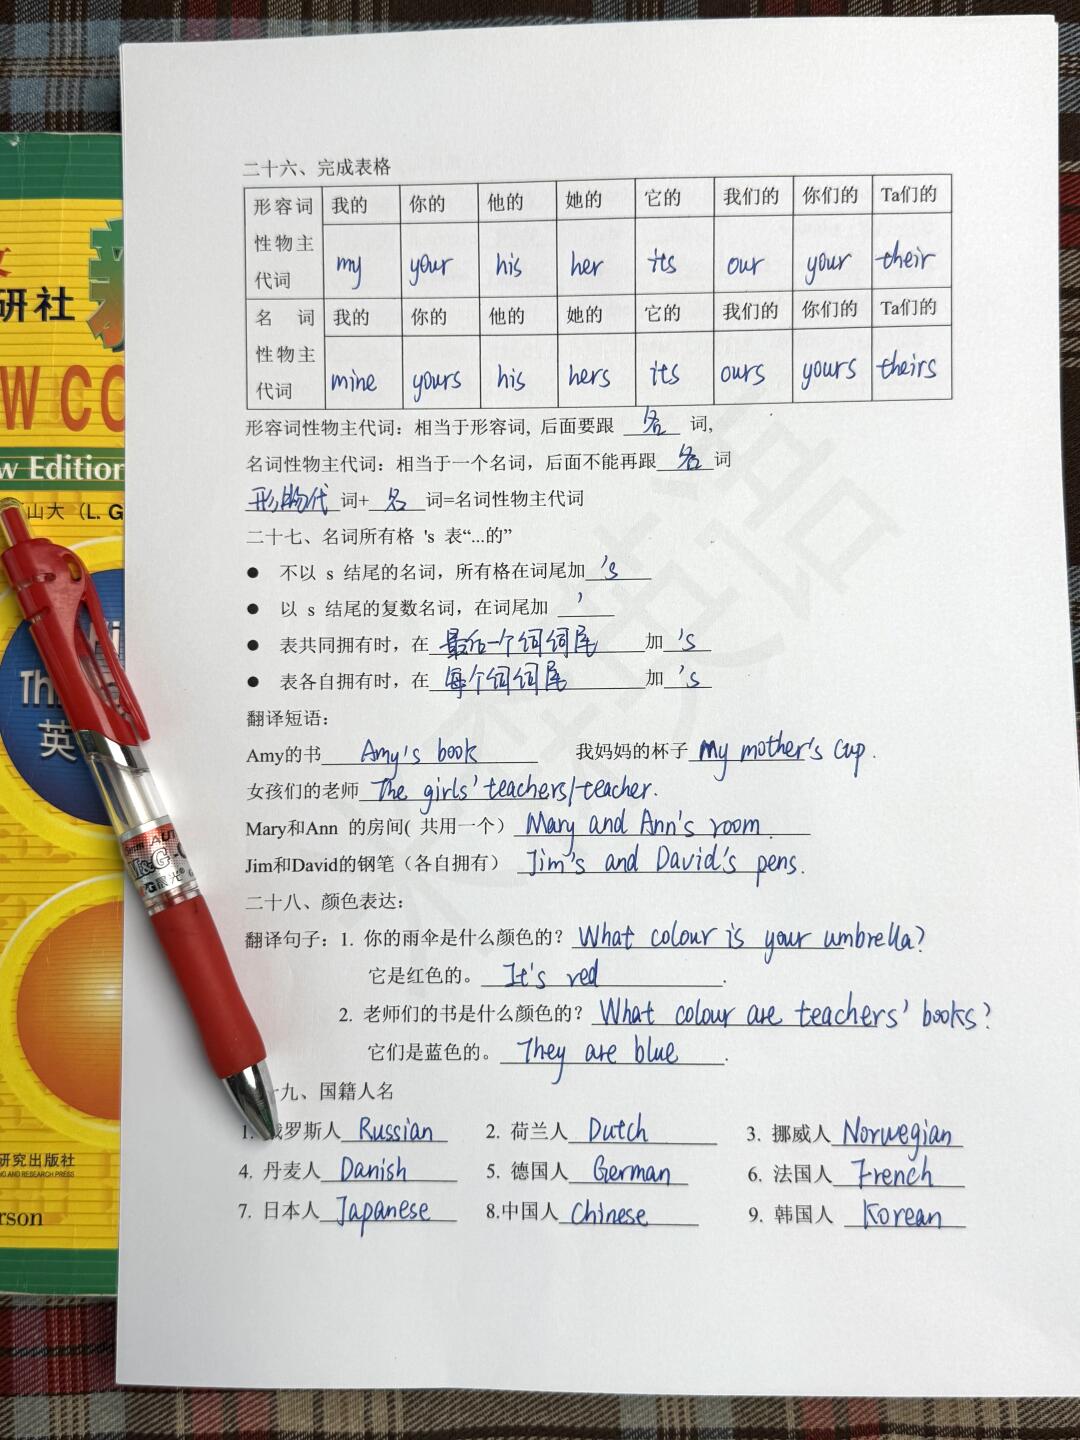 二十六、完成表格
形容词性物主代词 我的 你的 他的 她的 它的 我们的 你们的 Ta们的
my your his her its our your their
名词性物主代词 我的 你的 他的 她的 它的 我们的 你们的 Ta们的
mine yours his hers its ours yours theirs
形容词性物主代词：相当于形容词, 后面要跟 名 词,
名词性物主代词：相当于一个名词，后面不能再跟 名 词
形物代 词+ 名 词=名词性物主代词
二十七、名词所有格 's 表“...的”
● 不以 s 结尾的名词，所有格在词尾加 's
● 以 s 结尾的复数名词，在词尾加 '
● 表共同拥有时，在 最后一个词词尾 加 's
● 表各自拥有时，在 每个词词尾 加 's
翻译短语：
Amy的书 Amy's book 我妈妈的杯子 My mother's cup.
女孩们的老师 The girls' teachers/teacher.
Mary和Ann 的房间( 共用一个） Mary and Ann's room.
Jim和David的钢笔（各自拥有） Jim's and David's pens.
二十八、颜色表达：
翻译句子：1. 你的雨伞是什么颜色的？ What colour is your umbrella?
它是红色的。 It's red.
2. 老师们的书是什么颜色的？ What colour are teachers' books?
它们是蓝色的。 They are blue.
十九、国籍人名
1. 俄罗斯人 Russian 2. 荷兰人 Dutch 3. 挪威人 Norwegian
4. 丹麦人 Danish 5. 德国人 German 6. 法国人 French
7. 日本人 Japanese 8.中国人 Chinese 9. 韩国人 Korean
研社
W CO
w Edition
山大（L. G
Th
英
M&G
晨光
研究出版社
NG AND RESEARCH PRESS
rson